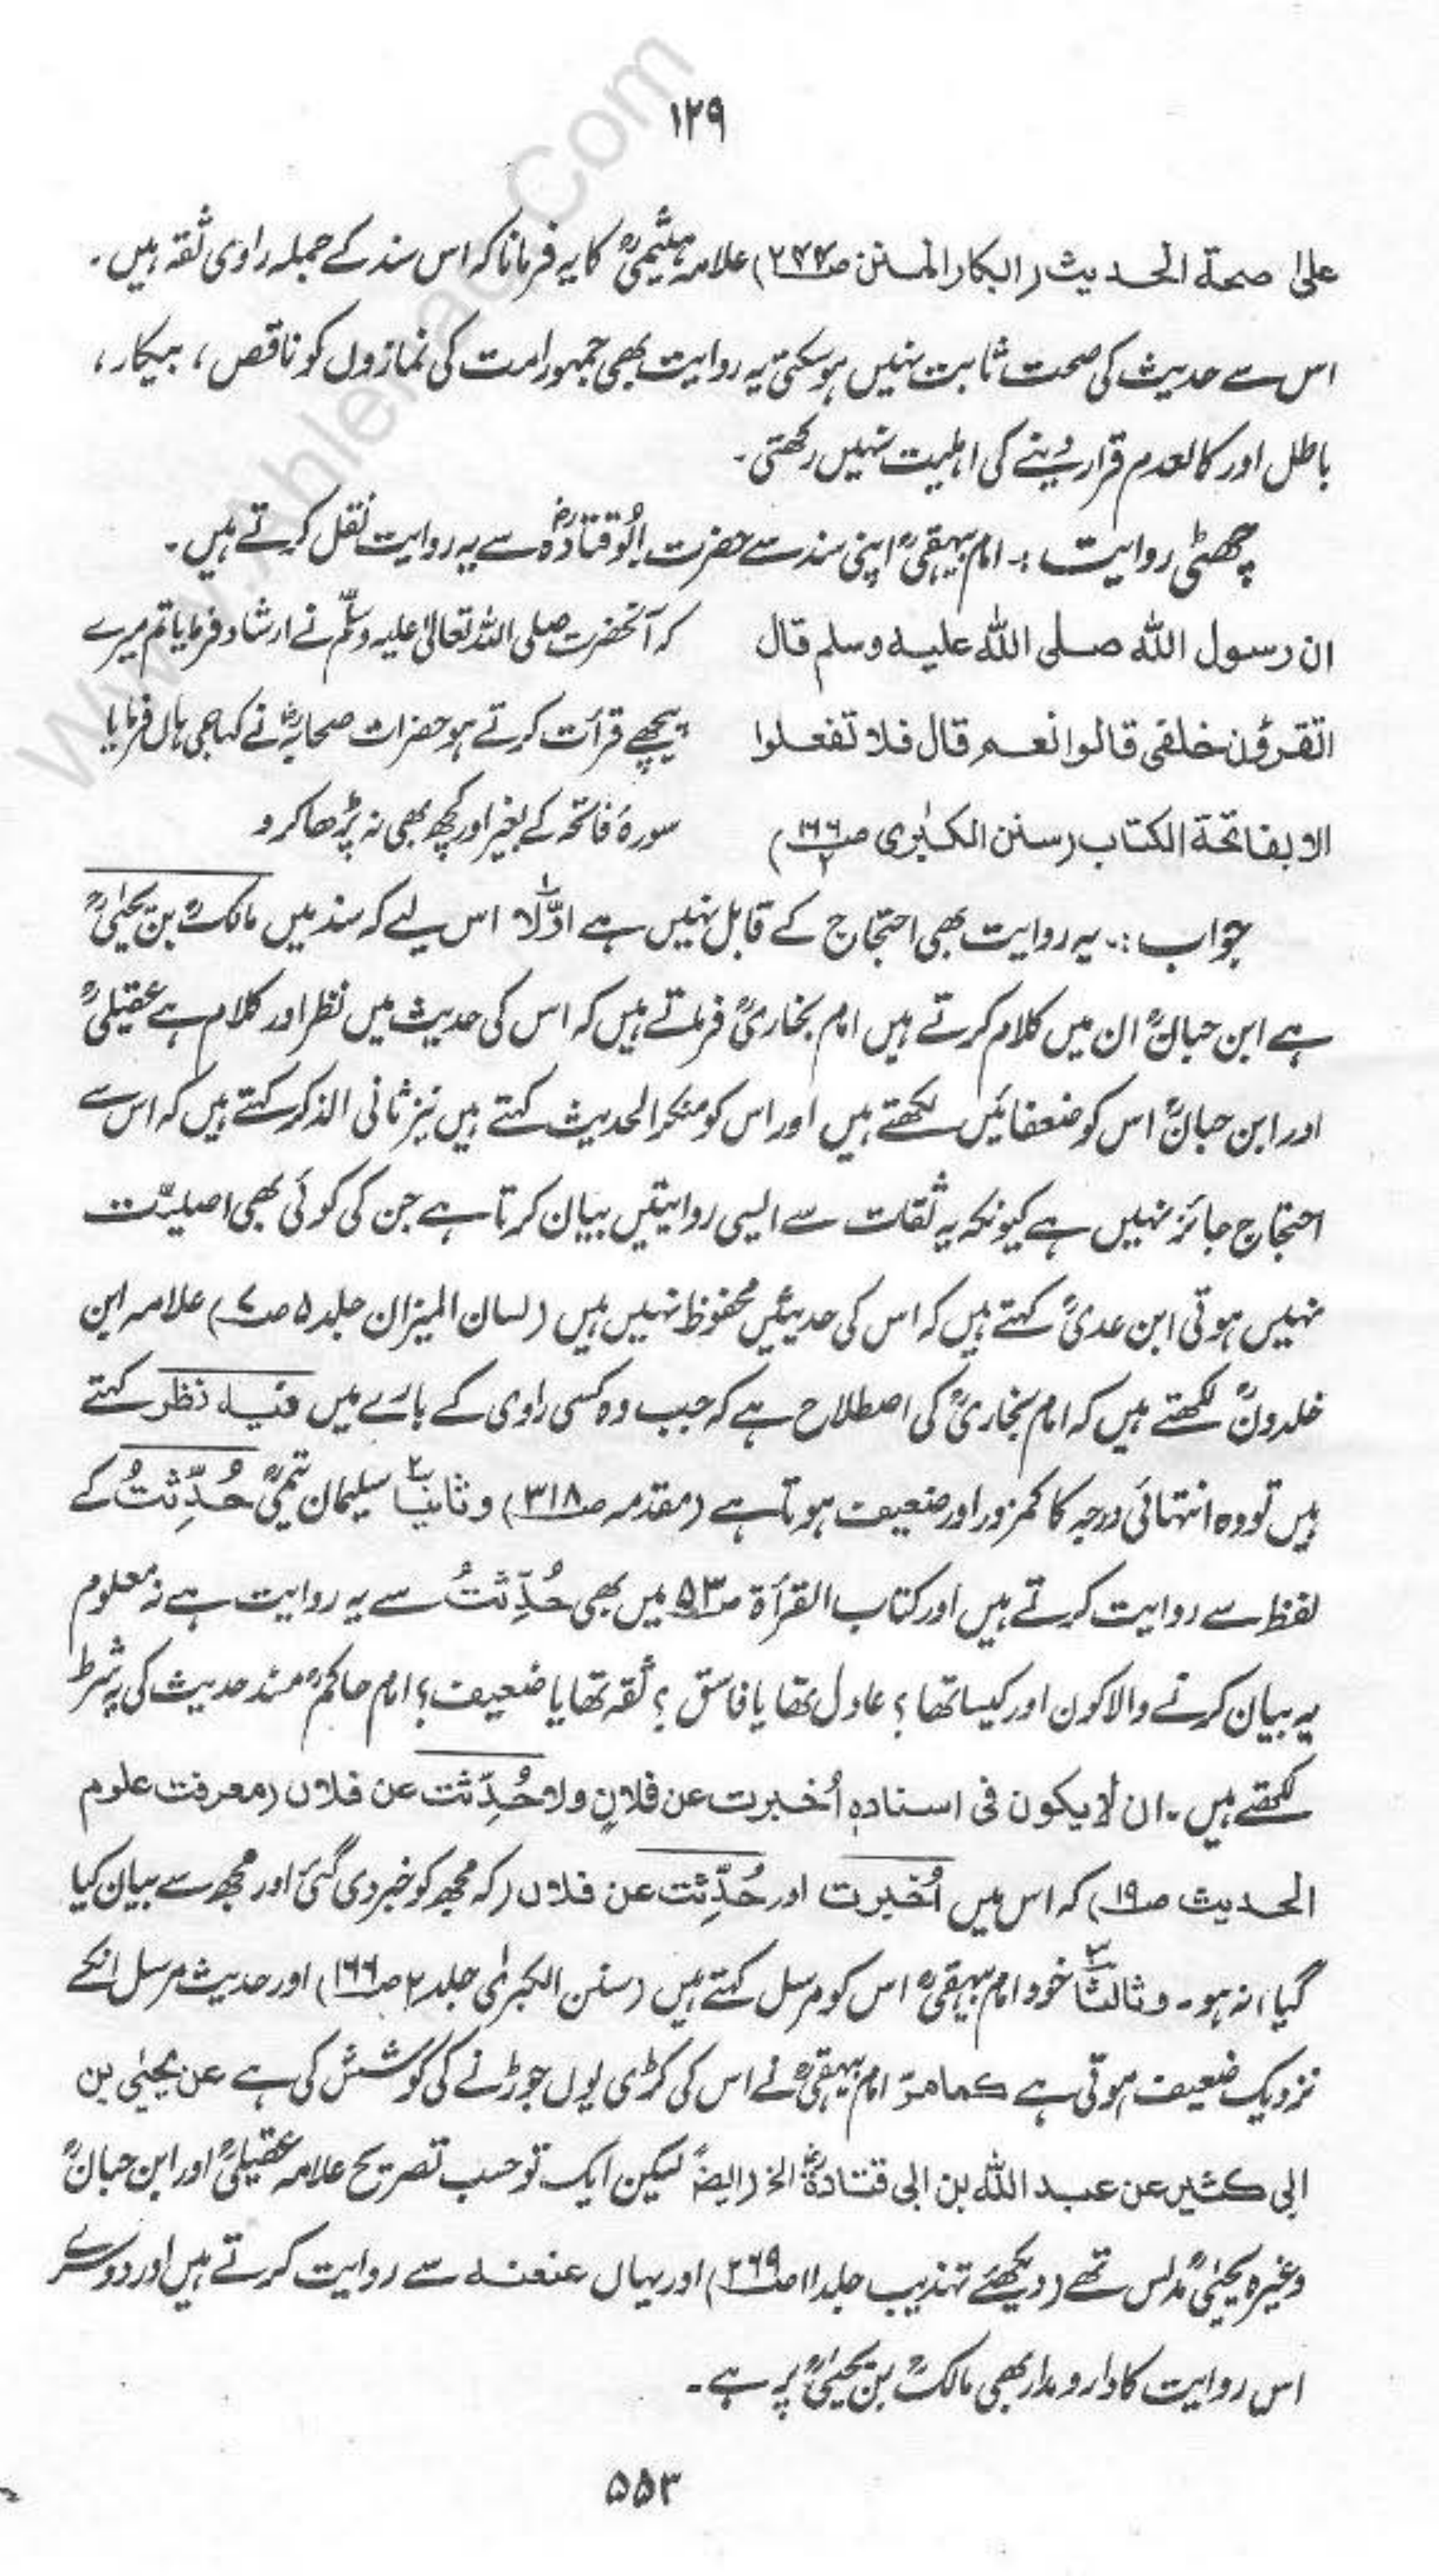 ۱۲۹
علیٰ صحة الحدیث (ابکار المنن ص۲۴۴) علامہ ہیثمیؒ کا یہ فرمانا کہ اس سند کے جملہ راوی ثقہ ہیں۔
اس سے حدیث کی صحت ثابت نہیں ہو سکتی یہ روایت بھی جمہور امت کی نمازوں کو ناقص، بیکار،
باطل اور کالعدم قرار دینے کی اہلیت نہیں رکھتی۔
چھٹی روایت :۔ امام بیہقیؒ اپنی سند سے حضرت ابُوقتادہؓ سے یہ روایت نقل کرتے ہیں۔
ان رسول اللہ صلی اللہ علیہ وسلم قال
اتقرؤن خلفی قالوا نعم قال فلا تفعلوا
الا بفاتحة الکتاب (سنن الکبریٰ ص۱۶۶/۲)
کہ آنحضرت صلی اللہ تعالیٰ علیہ وسلّم نے ارشاد فرمایا تم میرے
پیچھے قرأت کرتے ہو حضرات صحابہؓ نے کہا جی ہاں فرمایا
سورۂ فاتحہ کے بغیر اور کچھ بھی نہ پڑھا کرو
جواب :۔ یہ روایت بھی احتجاج کے قابل نہیں ہے اوّلاً اس لیے کہ سند میں مالکؒ بن یحییٰؒ
ہے ابن حبانؒ ان میں کلام کرتے ہیں امام بخاریؒ فرماتے ہیں کہ اس کی حدیث میں نظر اور کلام ہے عقیلیؒ
اور ابن حبانؒ اس کو ضعفا میں لکھتے ہیں اور اس کو منکر الحدیث کہتے ہیں نیز ثانی الذکر کہتے ہیں کہ اس سے
احتجاج جائز نہیں ہے کیونکہ یہ ثقات سے ایسی روایتیں بیان کرتا ہے جن کی کوئی بھی اصلیّت
نہیں ہوتی ابن عدیؒ کہتے ہیں کہ اس کی حدیثیں محفوظ نہیں ہیں (لسان المیزان جلد ۵ ص۷) علامہ ابن
خلدونؒ لکھتے ہیں کہ امام بخاریؒ کی اصطلاح ہے کہ جب وہ کسی راوی کے بارے میں فیہ نظر کہتے
ہیں تو وہ انتہائی درجہ کا کمزور اور ضعیف ہوتا ہے (مقدمہ ص۳۱۸) وثانیاً ۲ سلیمان تیمیؒ حُدِّثتُ کے
لفظ سے روایت کرتے ہیں اور کتاب القرأة ص۵۳ میں بھی حُدِّثتُ سے یہ روایت ہے نہ معلوم
یہ بیان کرنے والا کون اور کیسا تھا؟ عادل تھا یا فاسق؟ ثقہ تھا یا ضعیف؟ امام حاکمؒ مسند حدیث کی یہ شرط
لکھتے ہیں۔ ان لا یکون فی اسنادہٖ اُخبرت عن فلانٍ ولا حُدِّثت عن فلان (معرفت علوم
الحدیث ص۱۹) کہ اس میں اُخبرت اور حُدِّثت عن فلان (کہ مجھ کو خبر دی گئی اور مجھ سے بیان کیا
گیا) نہ ہو۔ وثالثاً ۳ خود امام بیہقیؒ اس کو مرسل کہتے ہیں (سنن الکبریٰ جلد ۲ ص۱۶۶) اور حدیث مرسل انکے
نزدیک ضعیف ہوتی ہے کما مرّ امام بیہقیؒ نے اس کی کڑی یوں جوڑنے کی کوشش کی ہے عن یحییٰ بن
ابی کثیر عن عبد اللہ بن ابی قتادةؓ الخ (ایضاً) لیکن ایک تو حسب تصریح علامہ عقیلیؒ اور ابن حبانؒ
وغیرہ یحییٰؒ مدلس تھے (دیکھئے تہذیب جلد ۱۱ ص۲۶۹) اور یہاں عنعنہ سے روایت کرتے ہیں اور دوسرے
اس روایت کا دار و مدار بھی مالکؒ بن یحییٰؒ پر ہے۔
۵۵۳